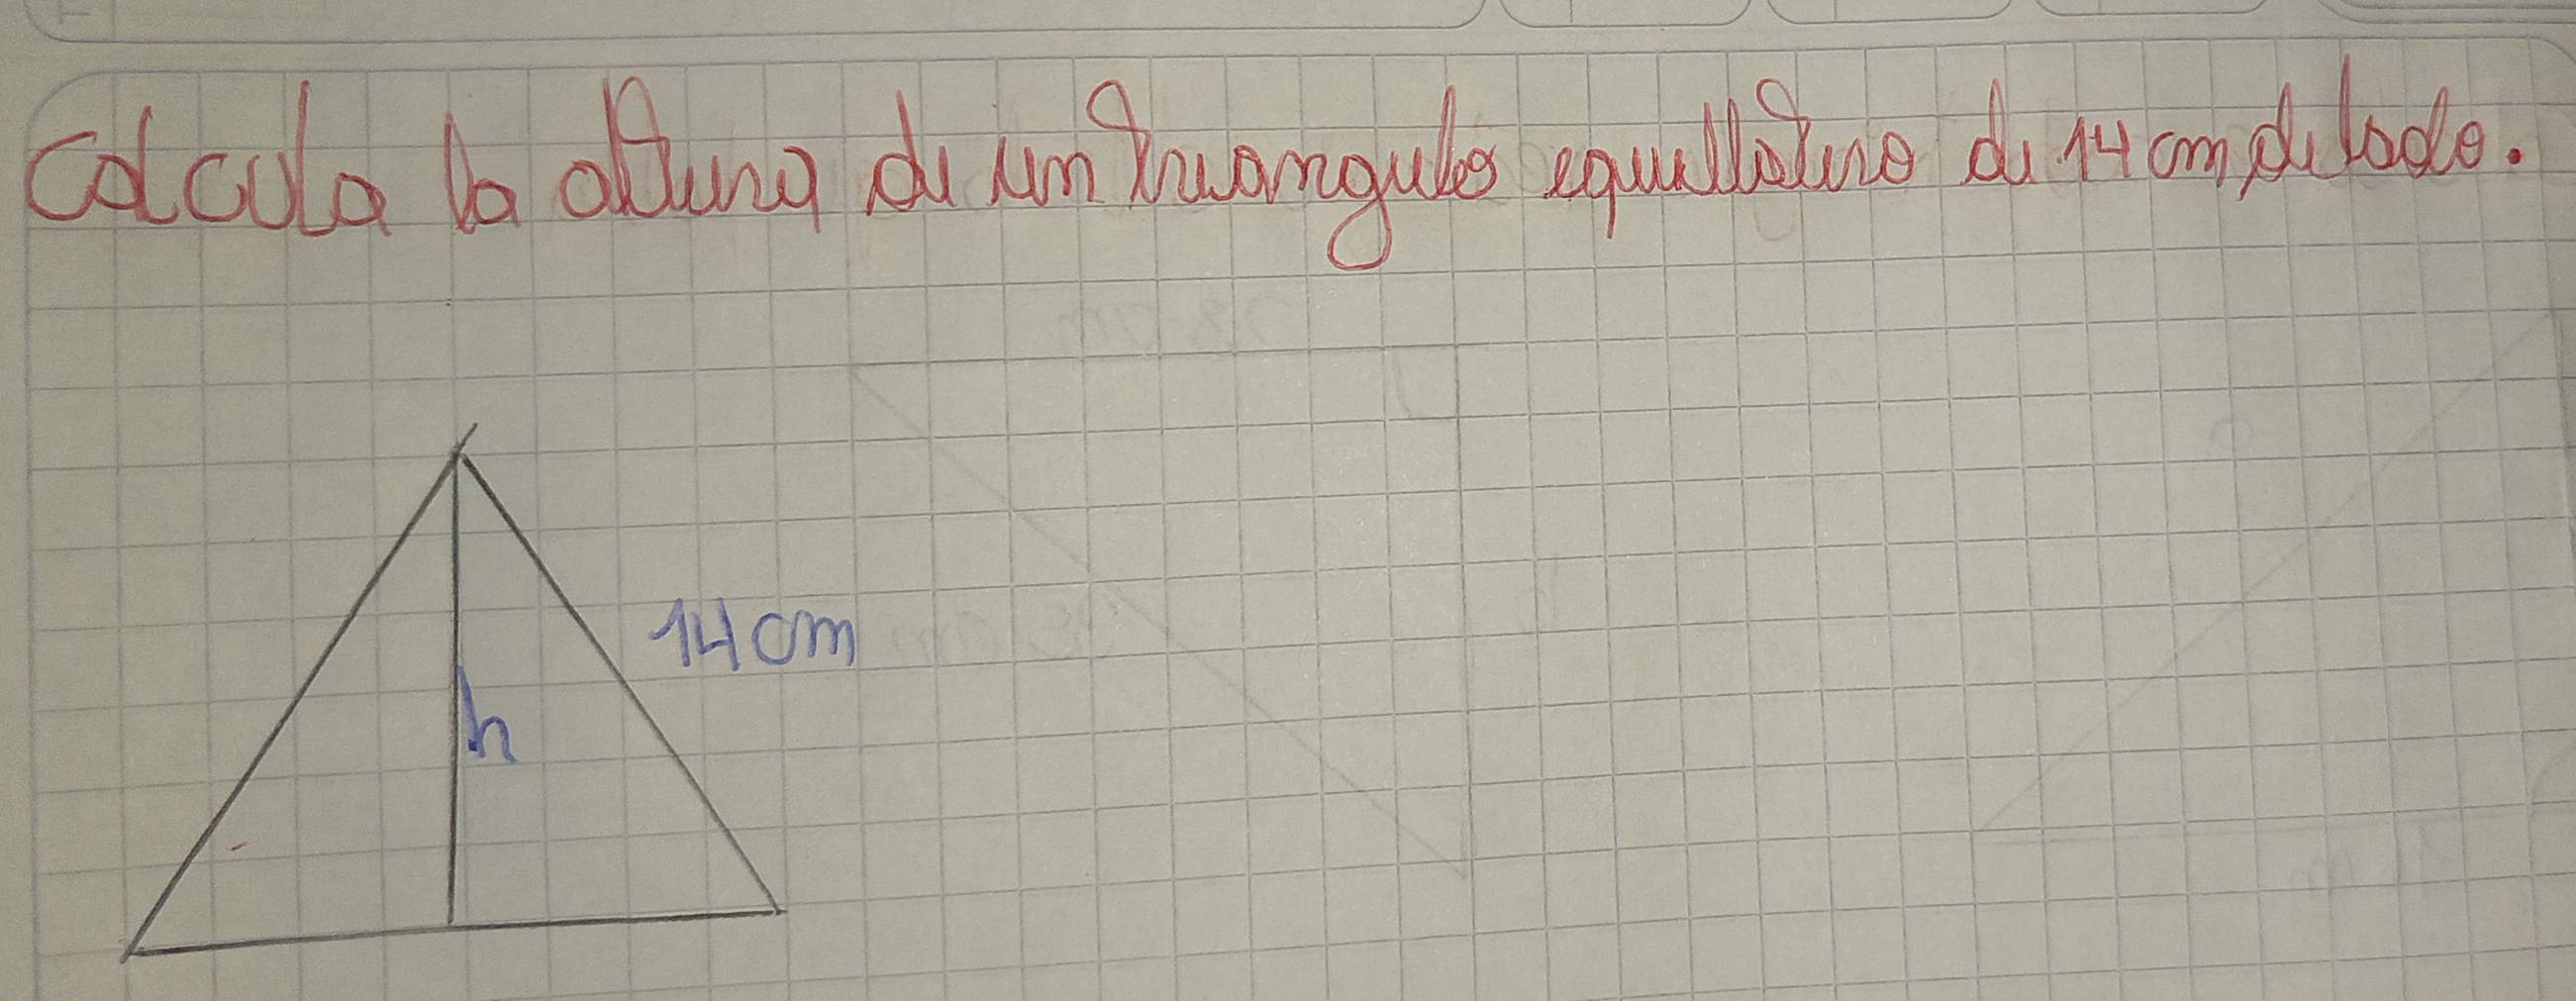 Calcula la altura de un triangulo equillatero de 14 cm de lado.
14 cm
h